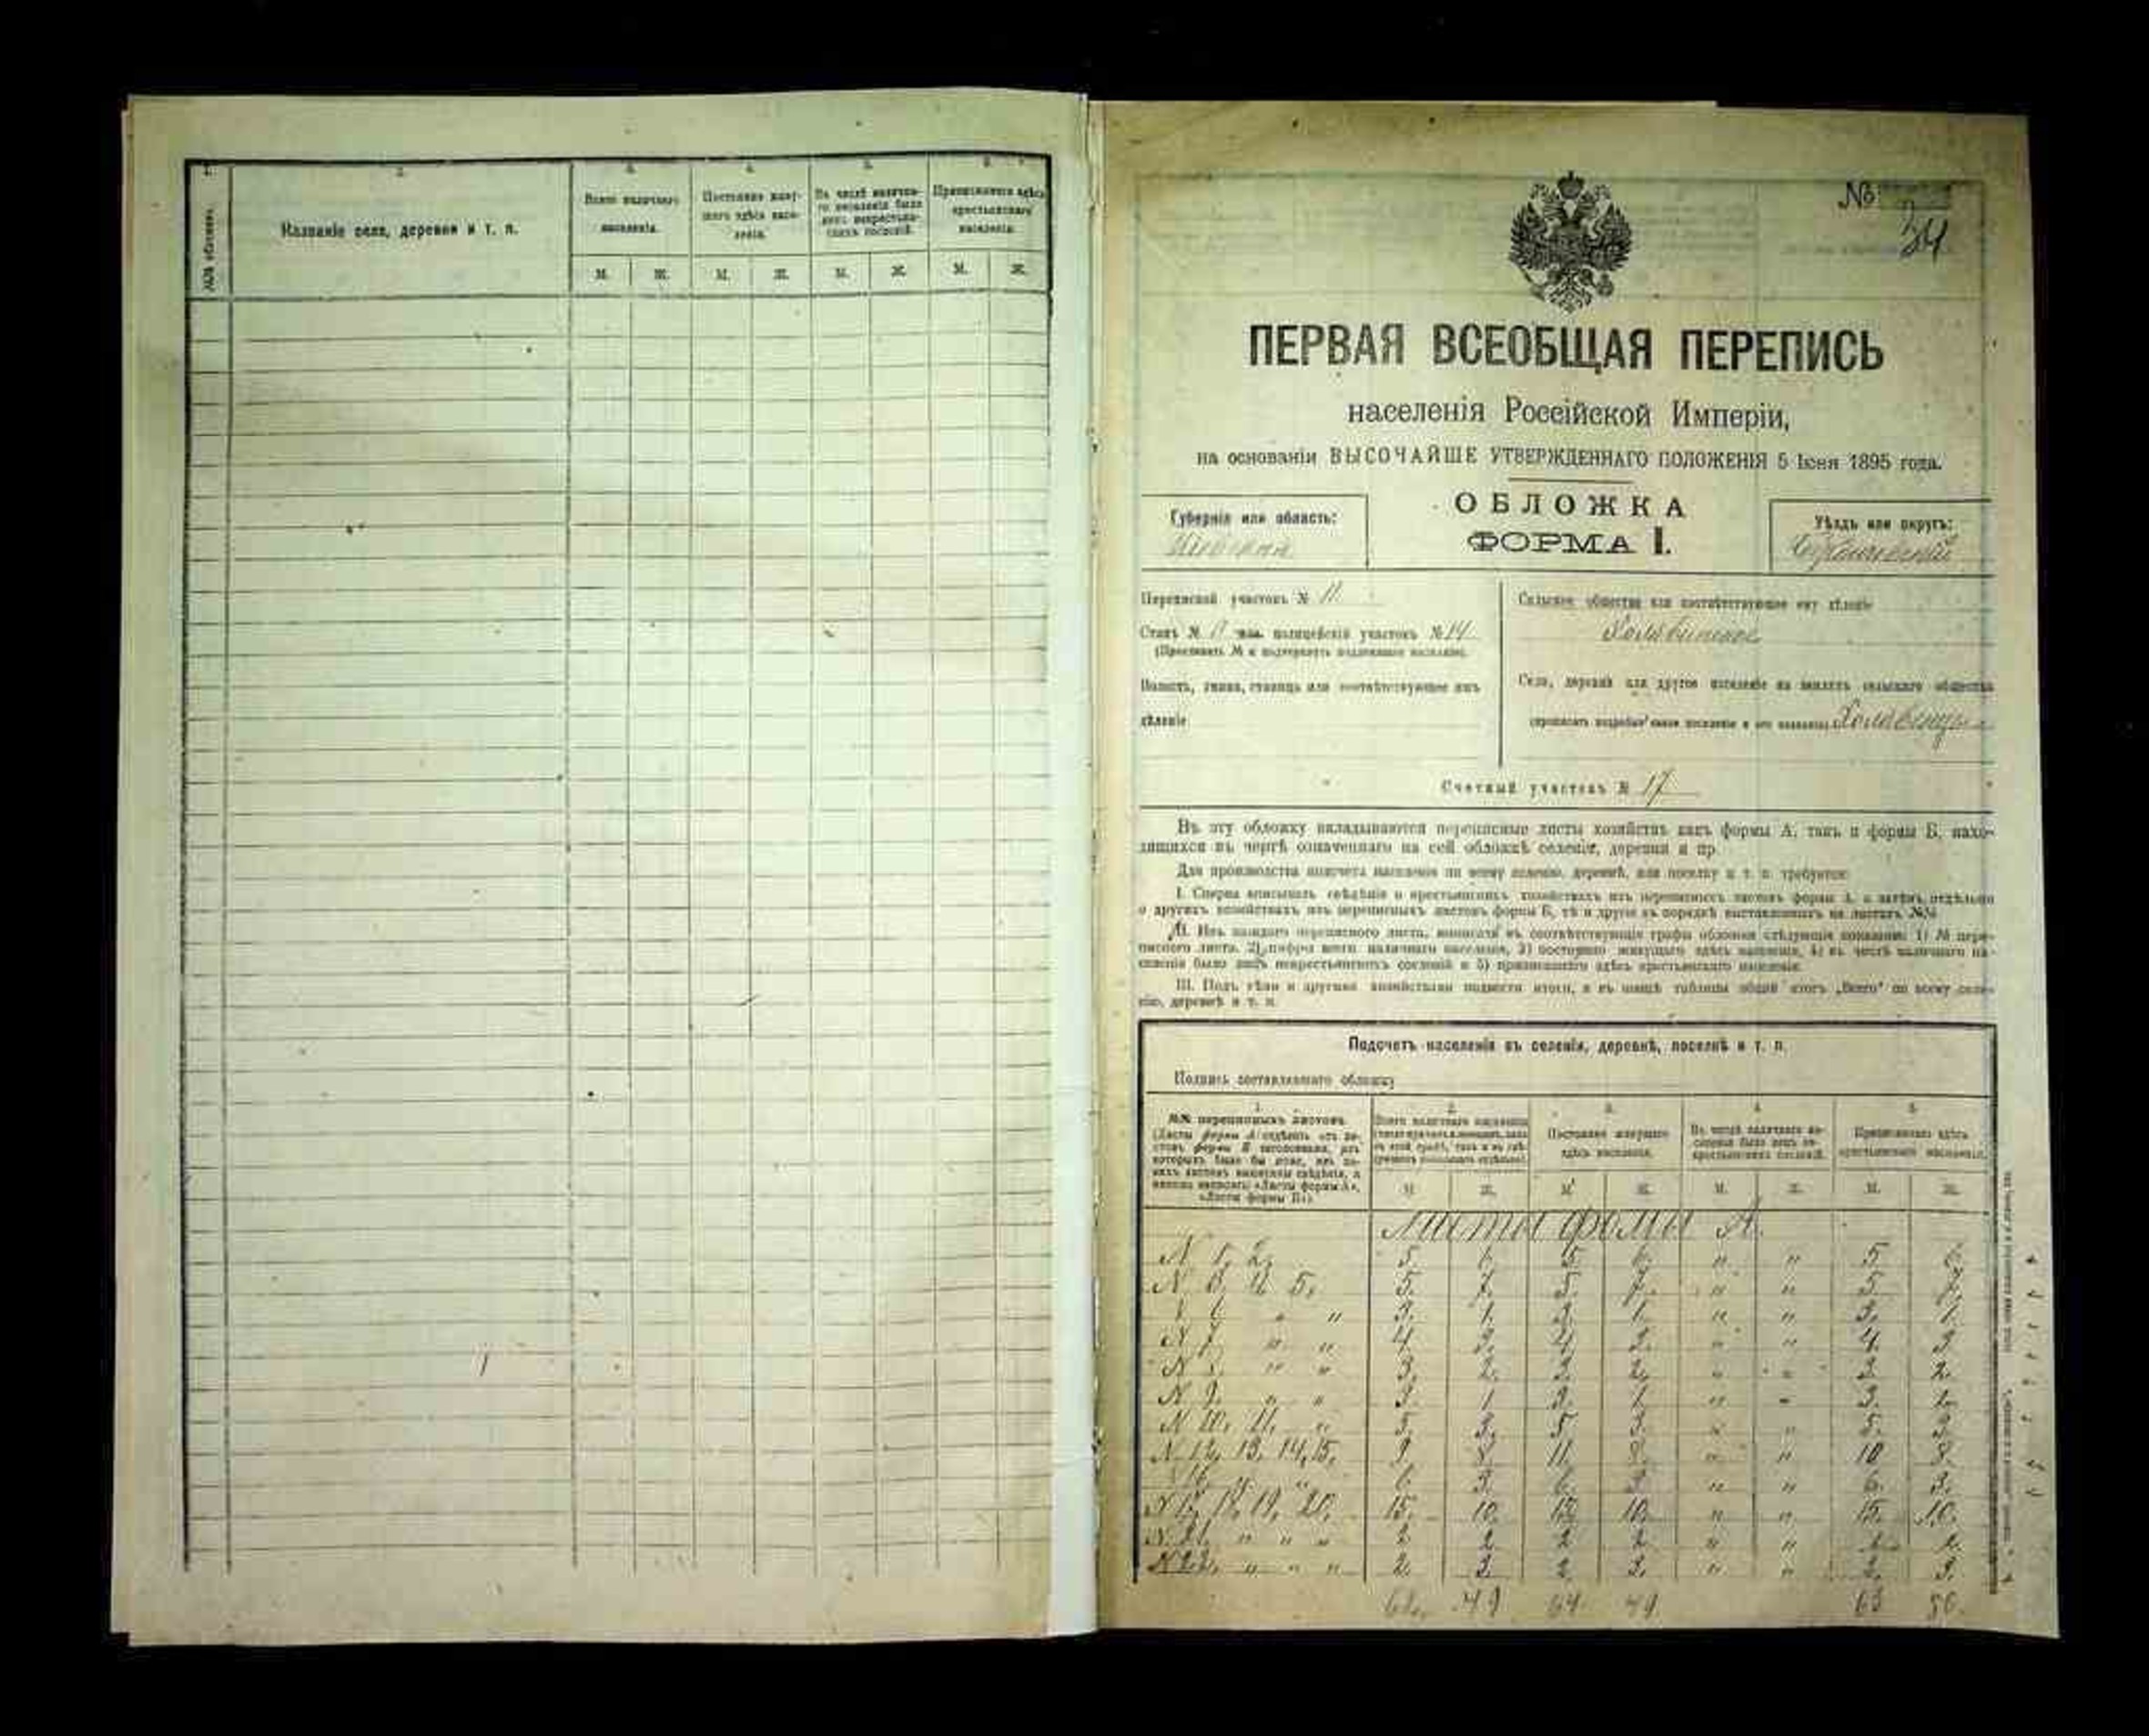 1.
2.
3.
4.
5.
6.
№№ обложекъ.
Названіе села, деревни и т. п.
Всего наличнаго населенія.
Постоянно живу-
щаго здѣсь насе-
ленія.
Въ числѣ налична-
го населенія было
лицъ некрестьян-
скихъ сословій.
Приписаннаго здѣсь
крестьянскаго
населенія.
М. Ж. М. Ж. М. Ж. М. Ж.
№
34
ПЕРВАЯ ВСЕОБЩАЯ ПЕРЕПИСЬ
населенія Россійской Имперіи,
на основаніи ВЫСОЧАЙШЕ УТВЕРЖДЕННАГО ПОЛОЖЕНІЯ 5 Іюня 1895 года.
ОБЛОЖКА
ФОРМА I.
Губернія или область:
Кіевская
Уѣздъ или округъ:
Переписной участокъ № 11.
Станъ № или полицейскій участокъ № 14
(Проставить № и подчеркнуть подлежащее названіе).
Волость, гмина, станица или соотвѣтствующее имъ
дѣленіе
Сельское общество или соотвѣтствующее ему дѣленіе
Село, деревня или другое поселеніе на земляхъ сельскаго общества
(прописать подробно какое поселеніе и его названіе)
Счетный участокъ № 17
Въ эту обложку вкладываются переписные листы хозяйствъ какъ формы А, такъ и формы Б, нахо-
дящихся въ чертѣ означеннаго на сей обложкѣ селенія, деревни и пр.
Для производства подсчета населенія по всему селенію, деревнѣ, или поселку и т. п. требуется:
I. Сперва вписывать свѣдѣнія о крестьянскихъ хозяйствахъ изъ переписныхъ листовъ формы А, а затѣмъ отдѣльно
о другихъ хозяйствахъ изъ переписныхъ листовъ формы Б, тѣ и другія въ порядкѣ выставленныхъ на листахъ №№
II. Изъ каждаго переписного листа, вписать въ соотвѣтствующія графы обложки слѣдующія показанія: 1) № пере-
писного листа, 2) цифры всего наличнаго населенія, 3) постоянно живущаго здѣсь населенія, 4) въ числѣ наличнаго на-
селенія было лицъ некрестьянскихъ сословій и 5) приписаннаго здѣсь крестьянскаго населенія.
III. Подъ тѣми и другими хозяйствами подвести итоги, а въ концѣ таблицы общій итогъ „Всего" по всему селе-
нію, деревнѣ и т. п.
Подсчетъ населенія въ селеніи, деревнѣ, поселкѣ и т. п.
Подпись составлявшаго обложку
1. 2. 3. 4. 5.
№№ переписныхъ листовъ.
Постоянно живущаго
здѣсь населенія.
Въ числѣ наличнаго на-
селенія было лицъ не-
крестьянскихъ сословій.
Приписаннаго здѣсь
крестьянскаго населенія.
М. Ж. М. Ж. М. Ж. М. Ж.
Листы формы А.
N 1, 2, 5. 5. " " 5.
N 3, 4, 5, 5. 7. 5. 7. " " 5. 7.
N 6 " " 3. 1. 3. 1. " " 3. 1.
N 7, " " 4. 3. 4. 3. " " 4. 3
N 8. " " 3. 2. 3. 2. " " 3. 2.
N 9. " " 3. 1 3. 1. " " 3. 1.
N 10, 11, " 5. 3. 5. 3. " " 5. 3.
N 12, 13, 14, 15, 9. 8. 11. 8. " " 10 8.
16, " " 6. 3. 6. 3 " " 6. 3.
N 17, 18, 19, 20, 15. 10. 15. 10. " " 15. 10.
N 21, " " " 2 2 2 2 " "
N 22, " " " 2. 3. 2. 3. " " 2. 3.
49 64 49 63 50.